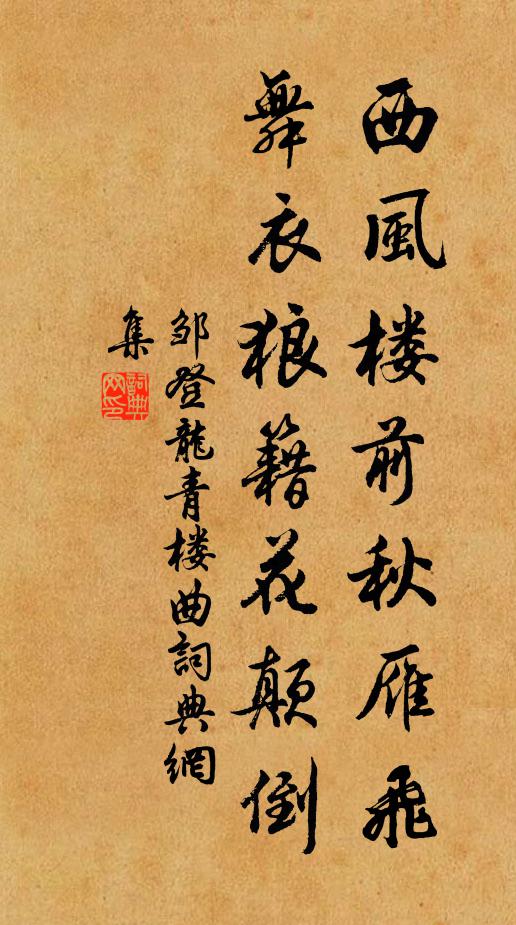 西風楼前秋雁飛
舞衣狼籍花顛倒
邹登龍青楼曲詞典網
集
詞典
网印